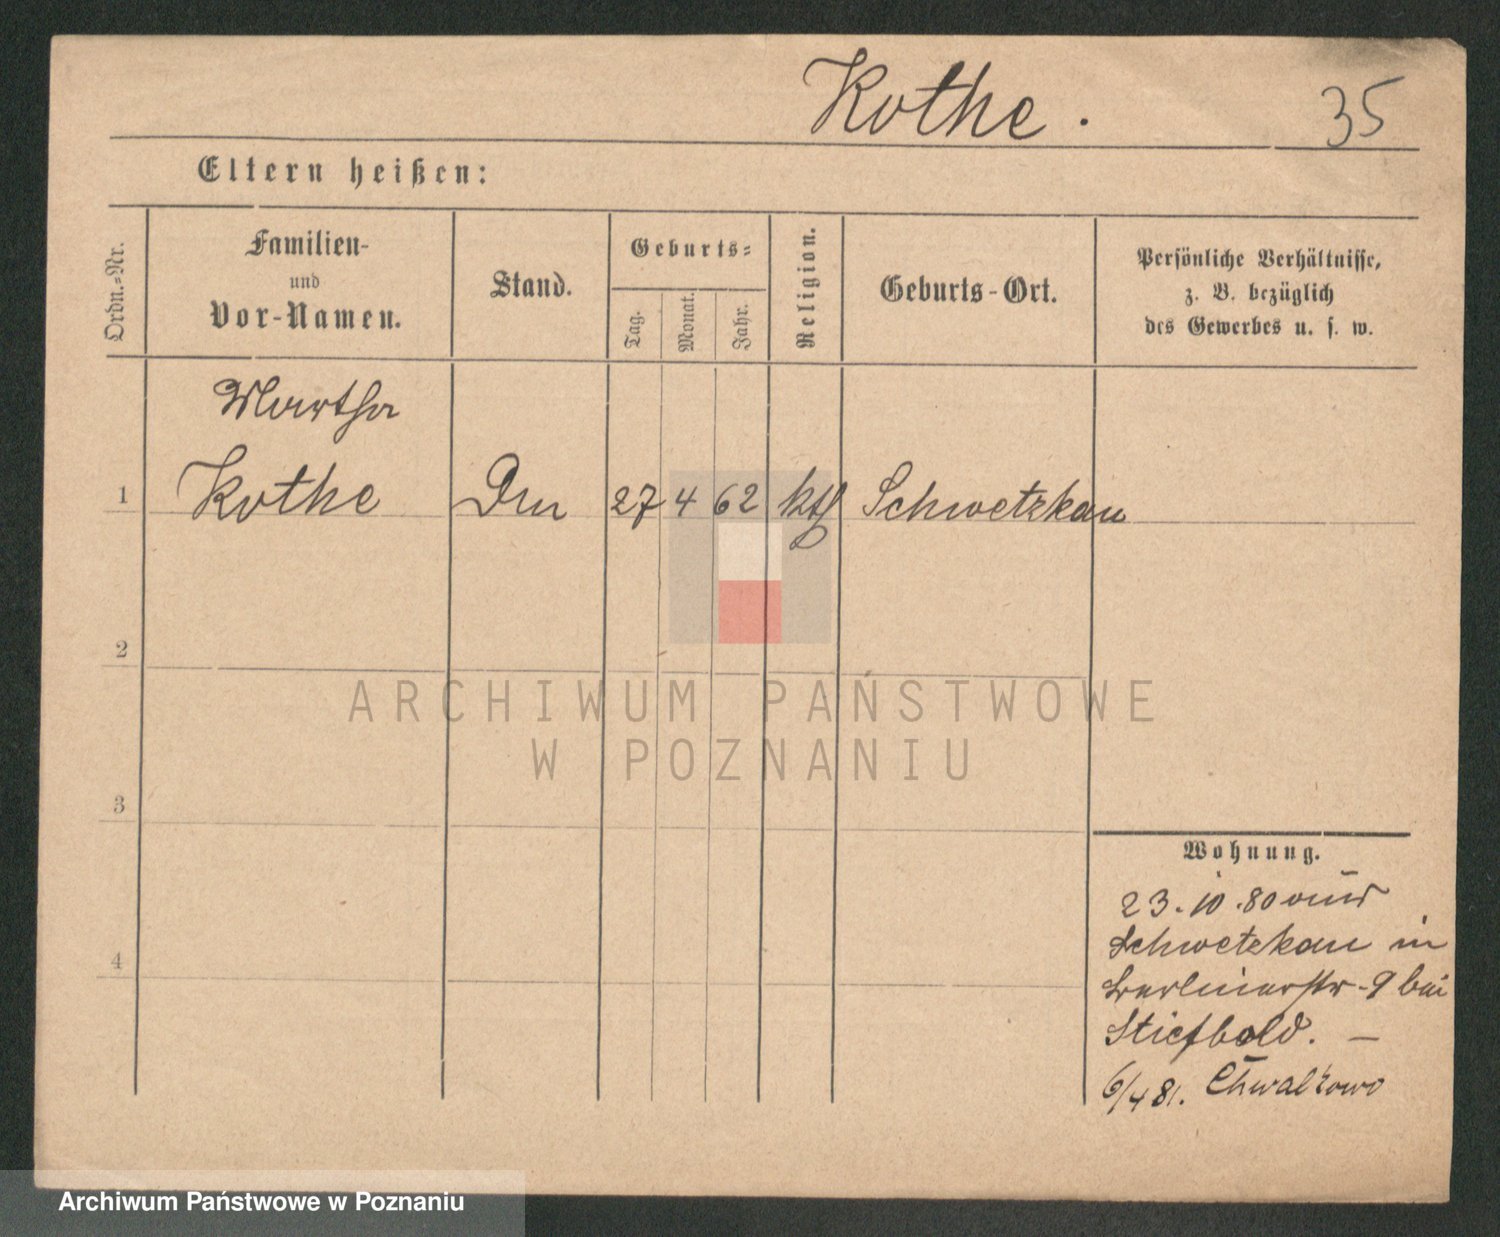 Kothe.
35
Eltern heißen:
Ordn.-Nr.
Familien-
und
Vor-Namen.
Stand.
Geburts-
Tag.
Monat.
Jahr.
Religion.
Geburts-Ort.
Persönliche Verhältnisse,
z. B. bezüglich
des Gewerbes u. s. w.
Martha
1 Kothe 27 4 62 kth Schwetzkau
2
ARCHIWUM PAŃSTWOWE
W POZNANIU
3
Wohnung.
23.10.80 aus
Schwetzkau in
4
Berlinerstr. 9 bei
Stiefbold. —
6/4 81. Chwalkowo
Archiwum Państwowe w Poznaniu